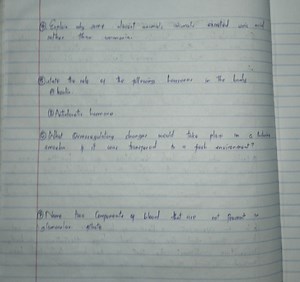 Explain why some desert animals excreted uric acid
rather than ammonia.
State the role of the following hormones in the body
Insulin
Antidiuretic hormone
What Osmoregulatory changes would take place in a
amoeba if it was transferred to a fresh environment?
Name two Components of blood that are not present in
glomerular filtrate